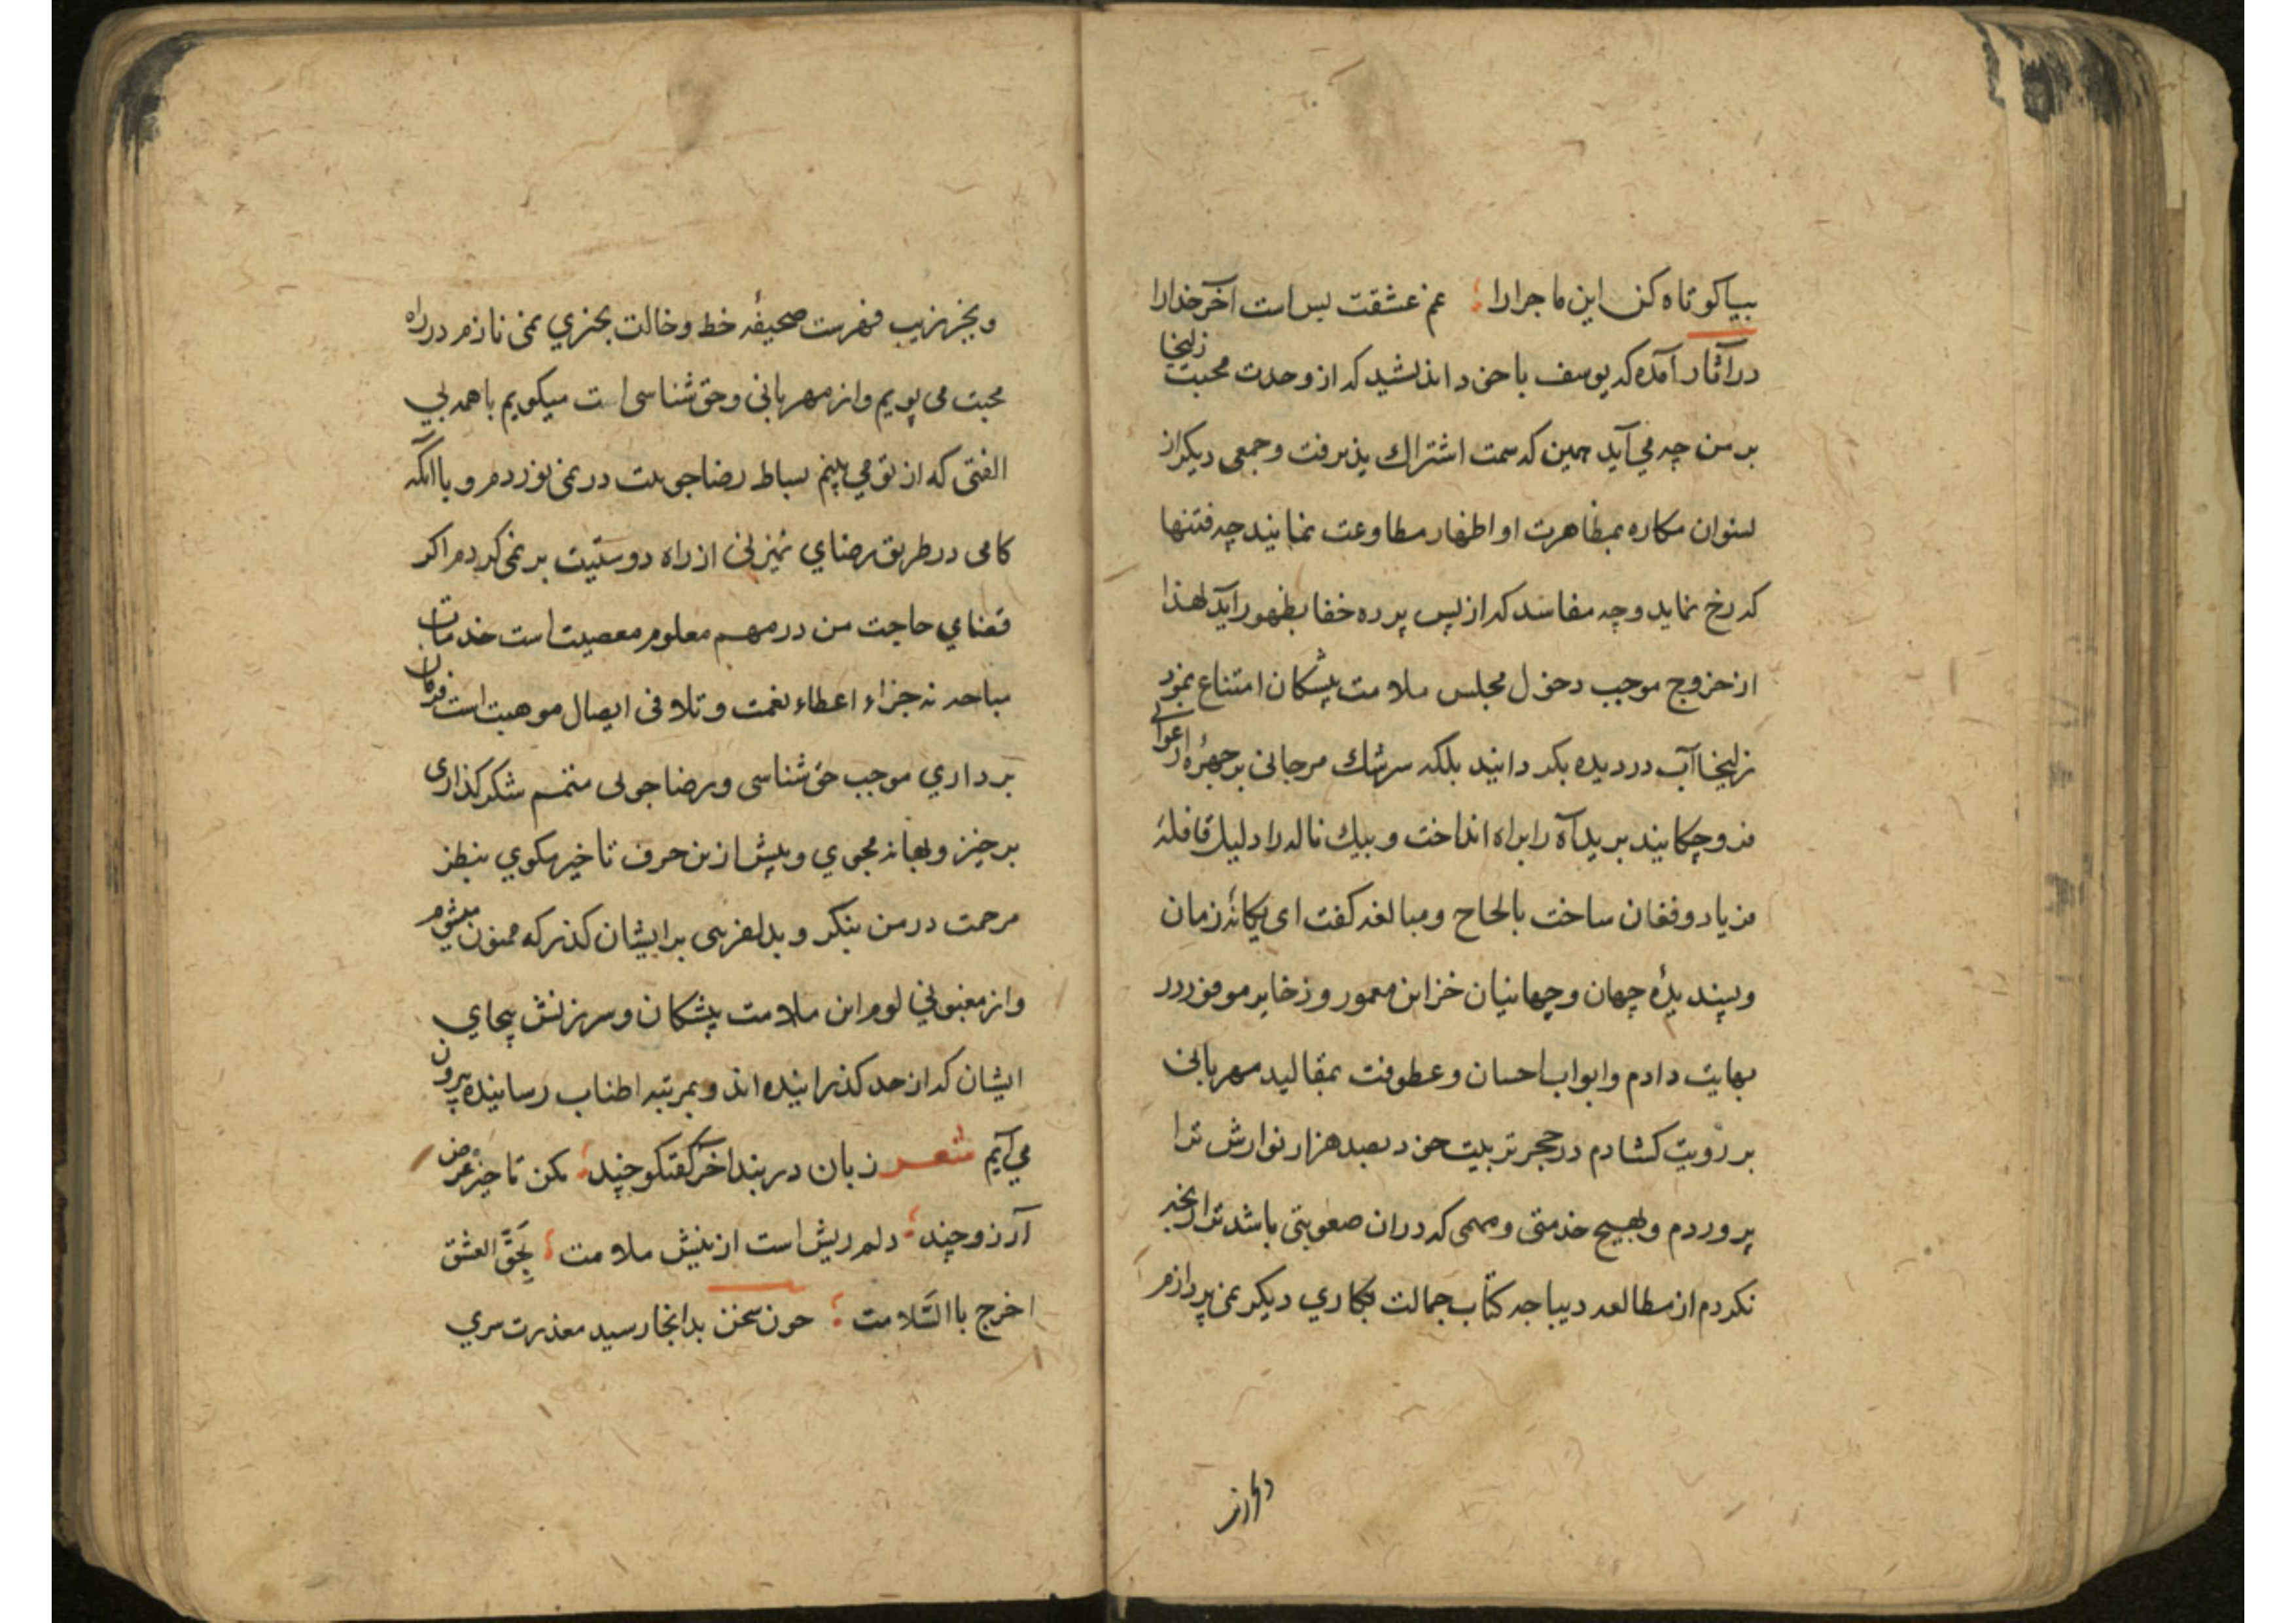 بیا کوتاه کن این ماجرا را ؛ غم عشقت بس است آخر خدا را
در آثار آمده که یوسف با خود اندیشید که از وحدت محبت زلیخا
بر من چه می آید چون که سمت اشتراک پذیرفت و جمعی دیکر از
نسوان مکاره بمظاهرت او اظهار مطاوعت نمایند چه فتنها
که رخ نماید و چه مفاسد که از پس پرده خفا بظهور آید لهذا
از خروج موجب دخول مجلس ملامت پیشکان امتناع نمود
زلیخا آب در دیده بکردانید بلکه سرشک مرجانی بر چهرهٔ ارغوانی
فرو چکانید برید آه را براه انداخت و پیک ناله را دلیل قافلهٔ
فریاد و فغان ساخت بالحاح و مبالغه کفت ای یکانهٔ زمان
و پسندیدهٔ جهان و جهانیان خزاین معمور و ذخایر موفور در
بهایت دادم و ابواب احسان و عطوفت بمقالید مهربانی
بر رویت کشادم در حجر تربیت خود بصد هزار نوازش ترا
پروردم و بهیچ خدمتی و مهمی که در ان صعوبتی باشد ترا رنجه
نکردم از مطالعه دیباجه کتاب جمالت بکاری دیکر نمی پردازم
و بجز بزیب فهرست صحیفهٔ خط و خالت بچیزی نمی نازم در راه
محبت می پویم و از مهربانی و حق شناسی است میکویم با همه بی
الفتی که از تو می بینم بساط رضا جویت در نمی نوردم و با آنکه
کامی در طریق رضای نمیزنی از راه دوستیت بر نمی کردم اکر
قضای حاجت من در مهم معلوم معصیت است خدمات
مباحه نه جزاء اعطاء نعمت و تلافی ایصال موهبت است فرمان
برداری موجب حق شناسی و رضا جویی متمم شکر کذاری
برخیز و بهانه مجوی و پیش ازین حرف تاخیر مکوی بنظر
مرحمت در من بنکر و بدلفریبی بر ایشان کذر که ممنون میشوم
و از مغبونی لوم این ملامت پیشکان و سرزنش بیجای
ایشان که از حد کذرانیده اند و بمرتبه اطناب رسانیده بیرون
می آیم شعر زبان در بند آخر کفتکو چند ؛ مکن تاخیر عرض
آرزو چند ؛ دلم ریش است از نیش ملامت ؛ بِحَقّ العشق
اخرج باالسّلامت ؛ چون سخن بدانجا رسید معذرت سری